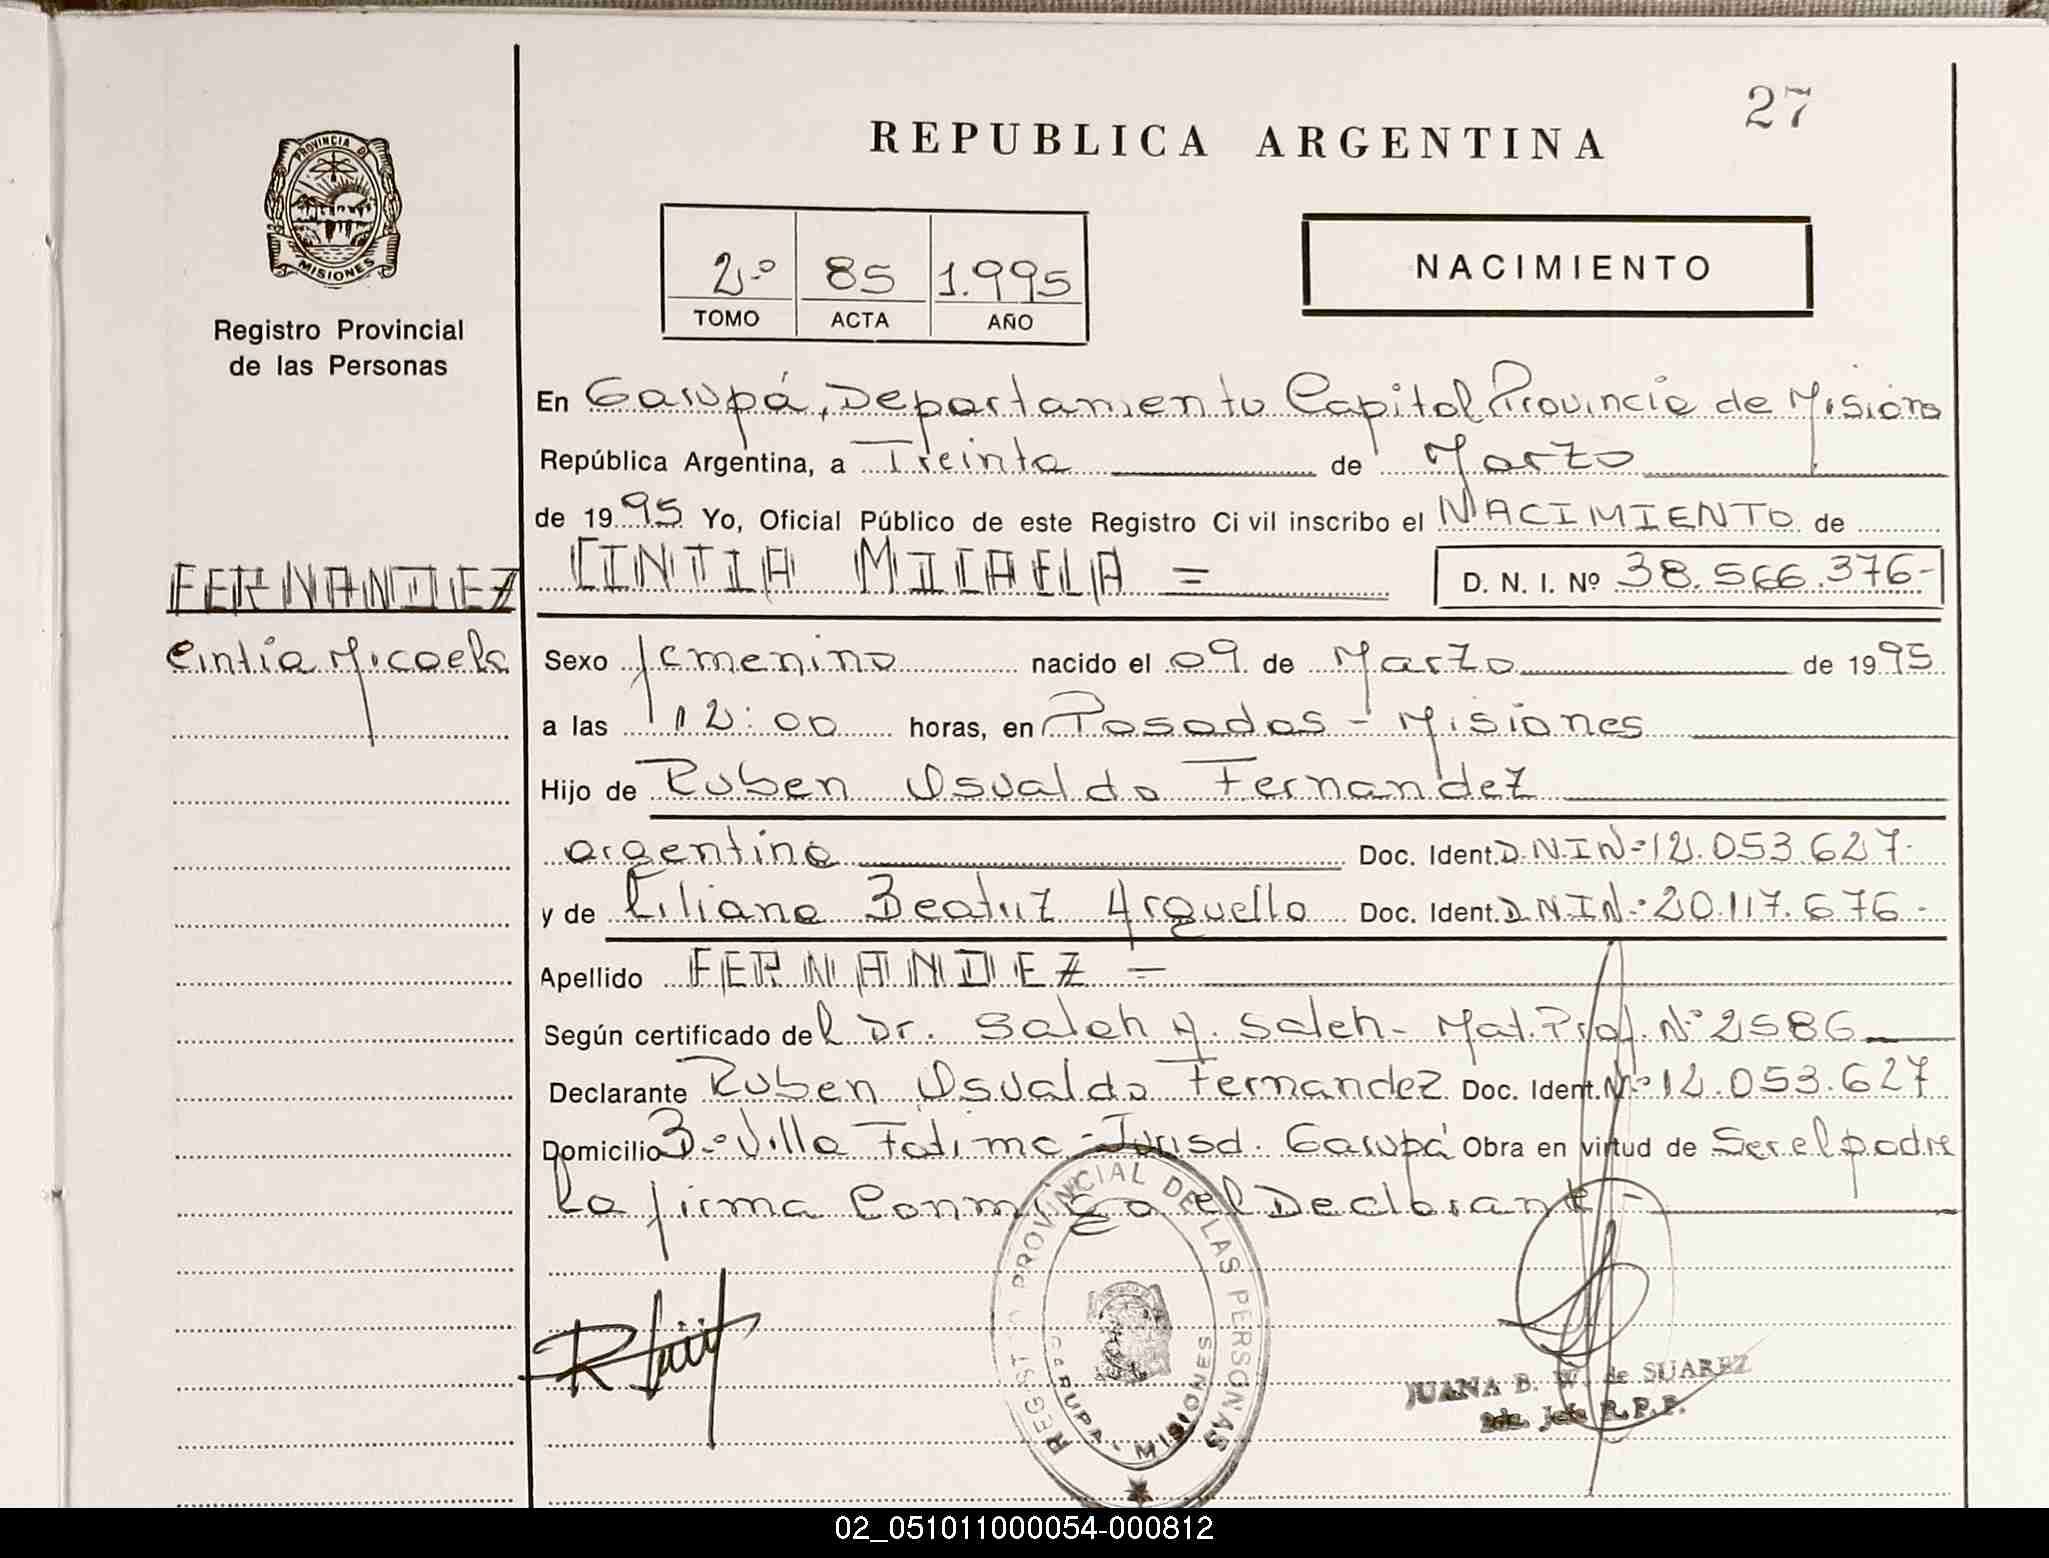 27
REPUBLICA ARGENTINA
PROVINCIA DE
MISIONES
Registro Provincial
de las Personas
2º 85 1.995
TOMO ACTA AÑO
NACIMIENTO
En Garupá, Departamento Capital Provincia de Misiones
República Argentina, a Treinta de Marzo
de 1995 Yo, Oficial Público de este Registro Civil inscribo el NACIMIENTO de
FERNANDEZ
Cintia Micaela
CINTIA MICAELA = D. N. I. Nº 38.566.376-
Sexo femenino nacido el 09 de Marzo de 1995
a las 12:00 horas, en Posadas - Misiones
Hijo de Ruben Osvaldo Fernandez
argentino Doc. Ident. D.N.I Nº 12.053.627.
y de Liliana Beatriz Arguello Doc. Ident. D.N.I Nº 20.117.676-
Apellido FERNANDEZ =
Según certificado del Dr. Saleh A. Saleh - Mat. Prof. Nº 2586
Declarante Ruben Osvaldo Fernandez Doc. Ident. Nº 12.053.627
Domicilio Bº Villa Fatima - Jurisd. Garupá Obra en virtud de Ser el padre
La firma Conmigo el Declarante -
REGISTRO PROVINCIAL DE LAS PERSONAS
GARUPA - MISIONES
JUANA B. W. de SUAREZ
Jefe R.P.P.
02_051011000054-000812